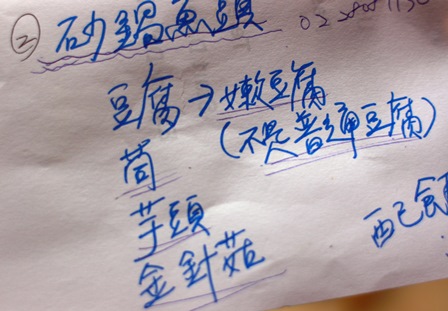 ② 砂鍋魚頭
豆腐→嫩豆腐
(不是普通豆腐)
茼
芋頭
金針菇
配